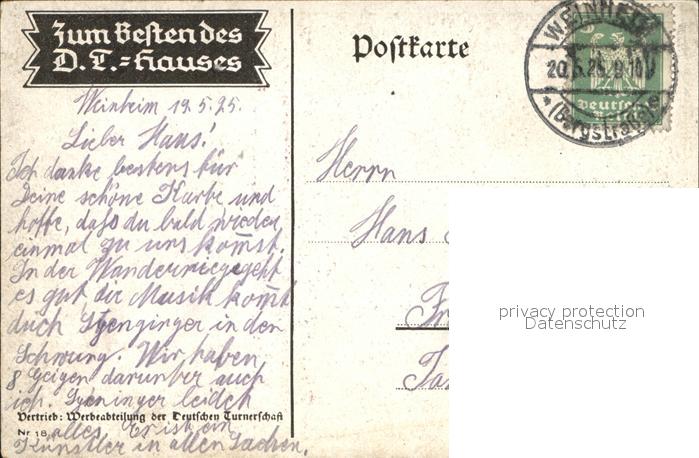 Zum Besten des
D. T.=Hauses
Postkarte
WEINHEIM
20.5.25.
(Bergstraße)
Deutsches
Weinheim 19.5.25.
Lieber Hans!
Ich danke bestens für
Deine schöne Karte und
hoffe, daß du bald wieder
einmal zu uns kom̅st.
In der Wanderriege geht
es gut die Musik kom̅t
duch in den
Schwung. Wir haben
8 Geigen darunter auch
ich. leidet
alles. Er ist ein
Künstler in allen Sachen.
Vertrieb: Werbeabteilung der Deutschen Turnerschaft
Nr. 18
Herrn
Hans
privacy protection
Datenschutz